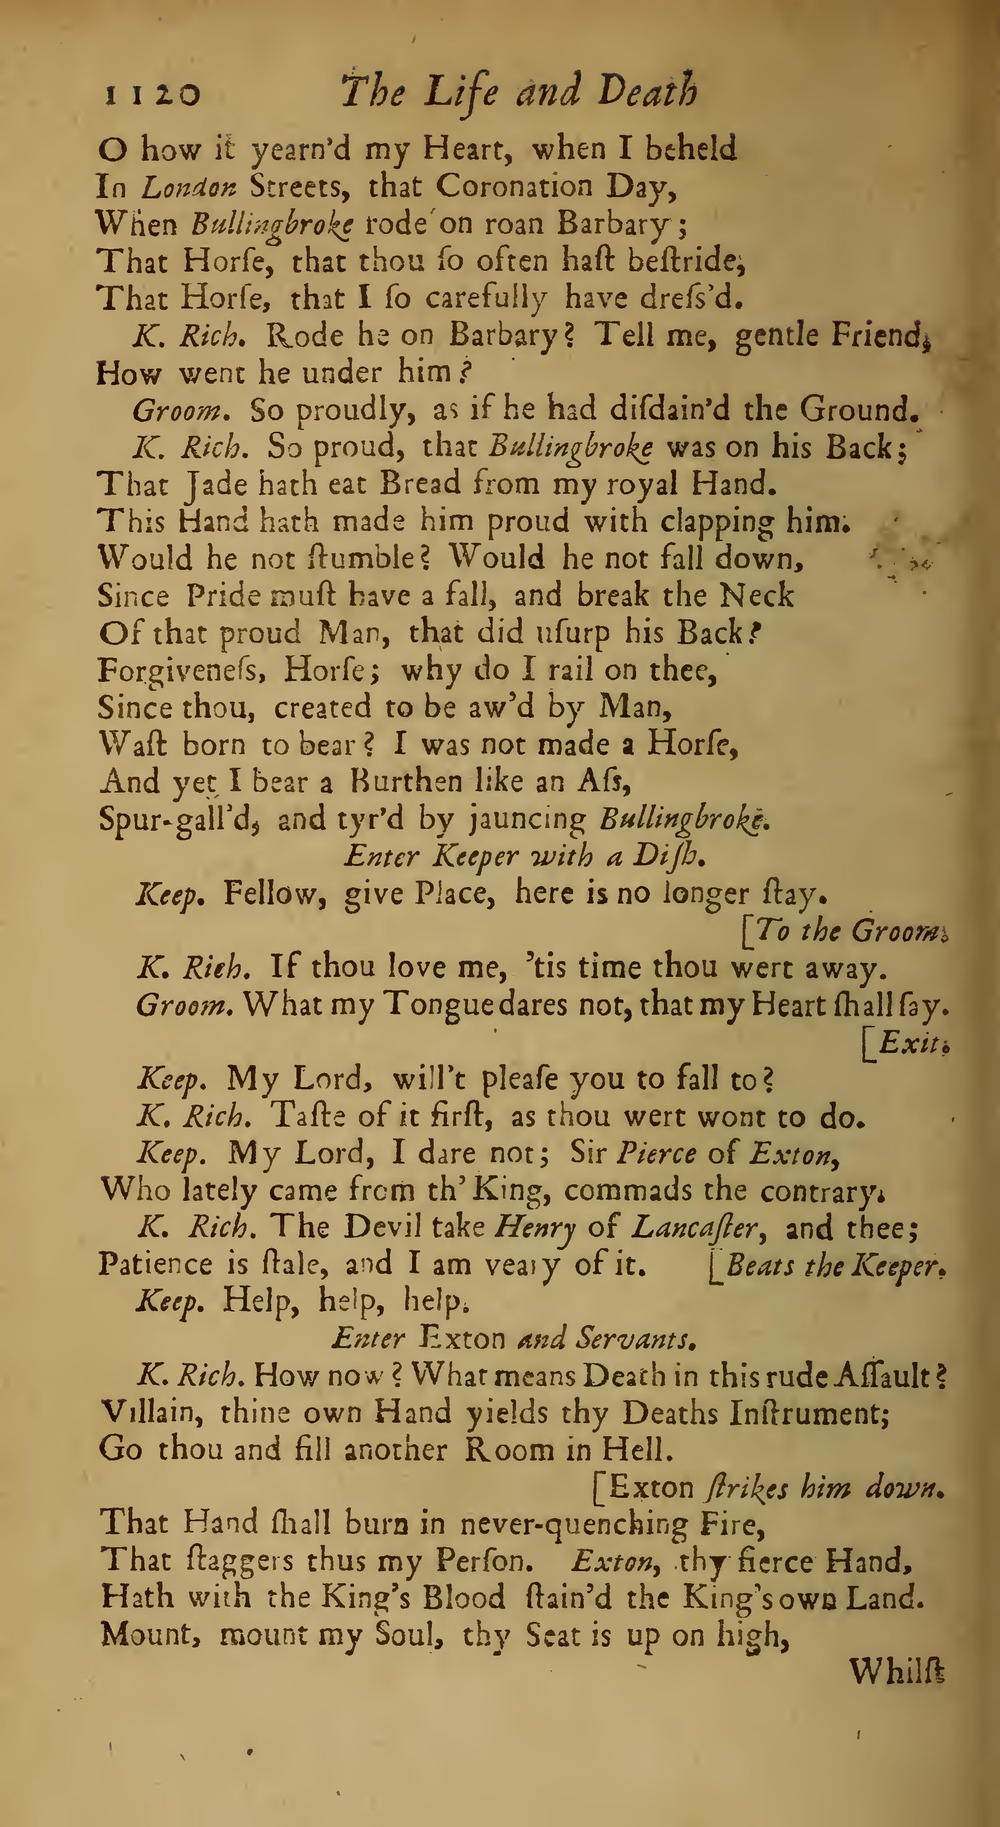 1120 The Life and Death
O how it yearn'd my Heart, when I beheld
In London Streets, that Coronation Day,
When Bullingbroke rode on roan Barbary;
That Horſe, that thou ſo often haſt beſtride,
That Horſe, that I ſo carefully have dreſs'd.
K. Rich. Rode he on Barbary? Tell me, gentle Friend,
How went he under him?
Groom. So proudly, as if he had diſdain'd the Ground.
K. Rich. So proud, that Bullingbroke was on his Back;
That Jade hath eat Bread from my royal Hand.
This Hand hath made him proud with clapping him.
Would he not ſtumble? Would he not fall down,
Since Pride muſt have a fall, and break the Neck
Of that proud Man, that did uſurp his Back?
Forgiveneſs, Horſe; why do I rail on thee,
Since thou, created to be aw'd by Man,
Waſt born to bear? I was not made a Horſe,
And yet I bear a Burthen like an Aſs,
Spur-gall'd, and tyr'd by jauncing Bullingbroke.
Enter Keeper with a Diſh.
Keep. Fellow, give Place, here is no longer ſtay.
[To the Groom.
K. Rich. If thou love me, 'tis time thou wert away.
Groom. What my Tongue dares not, that my Heart ſhall ſay.
[Exit.
Keep. My Lord, will't pleaſe you to fall to?
K. Rich. Taſte of it firſt, as thou wert wont to do.
Keep. My Lord, I dare not; Sir Pierce of Exton,
Who lately came from th' King, commads the contrary.
K. Rich. The Devil take Henry of Lancaſter, and thee;
Patience is ſtale, and I am weary of it. [Beats the Keeper.
Keep. Help, help, help.
Enter Exton and Servants.
K. Rich. How now? What means Death in this rude Aſſault?
Villain, thine own Hand yields thy Deaths Inſtrument;
Go thou and fill another Room in Hell.
[Exton ſtrikes him down.
That Hand ſhall burn in never-quenching Fire,
That ſtaggers thus my Perſon. Exton, thy fierce Hand,
Hath with the King's Blood ſtain'd the King's own Land.
Mount, mount my Soul, thy Seat is up on high,
Whilſt